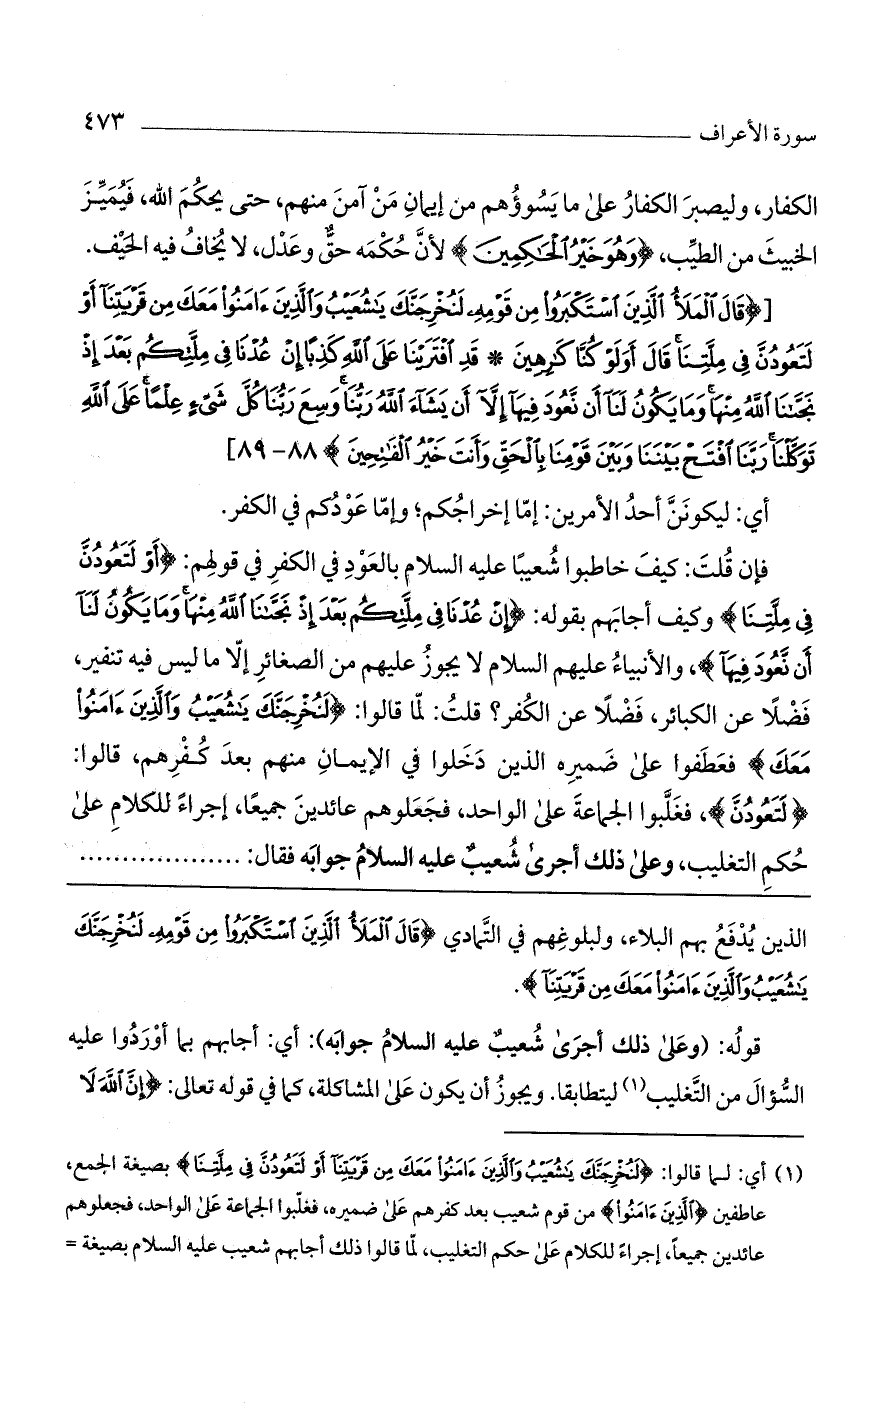 سورة الأعراف ٤٧٣
الكفار، وليصبرَ الكفارُ علىٰ ما يَسُوؤُهم من إيمانِ مَنْ آمنَ منهم، حتى يحكُمَ الله، فَيُمَيِّزَ
الخبيثَ من الطيِّب، ﴿وَهُوَ خَيْرُ ٱلْحَٰكِمِينَ﴾ لأنَّ حُكْمَه حقٌّ وعَدْل، لا يُخافُ فيه الحَيْف.
[﴿قَالَ ٱلْمَلَأُ ٱلَّذِينَ ٱسْتَكْبَرُوا۟ مِن قَوْمِهِۦ لَنُخْرِجَنَّكَ يَٰشُعَيْبُ وَٱلَّذِينَ ءَامَنُوا۟ مَعَكَ مِن قَرْيَتِنَآ أَوْ
لَتَعُودُنَّ فِى مِلَّتِنَا ۚ قَالَ أَوَلَوْ كُنَّا كَٰرِهِينَ * قَدِ ٱفْتَرَيْنَا عَلَى ٱللَّهِ كَذِبًا إِنْ عُدْنَا فِى مِلَّتِكُم بَعْدَ إِذْ
نَجَّىٰنَا ٱللَّهُ مِنْهَا ۚ وَمَا يَكُونُ لَنَآ أَن نَّعُودَ فِيهَآ إِلَّآ أَن يَشَآءَ ٱللَّهُ رَبُّنَا ۚ وَسِعَ رَبُّنَا كُلَّ شَىْءٍ عِلْمًا ۚ عَلَى ٱللَّهِ
تَوَكَّلْنَا ۚ رَبَّنَا ٱفْتَحْ بَيْنَنَا وَبَيْنَ قَوْمِنَا بِٱلْحَقِّ وَأَنتَ خَيْرُ ٱلْفَٰتِحِينَ﴾ ٨٨ – ٨٩]
أي: ليكونَنَّ أحدُ الأمرين: إمّا إخراجُكم؛ وإمّا عَوْدُكم في الكفر.
فإن قُلتَ: كيفَ خاطبوا شُعيبًا عليه السلام بالعَوْدِ في الكفرِ في قولهِم: ﴿أَوْ لَتَعُودُنَّ
فِى مِلَّتِنَا﴾ وكيف أجابَهم بقوله: ﴿إِنْ عُدْنَا فِى مِلَّتِكُم بَعْدَ إِذْ نَجَّىٰنَا ٱللَّهُ مِنْهَا ۚ وَمَا يَكُونُ لَنَآ
أَن نَّعُودَ فِيهَآ﴾، والأنبياءُ عليهم السلام لا يجوزُ عليهم من الصغائرِ إلّا ما ليس فيه تنفير،
فَضْلًا عن الكبائر، فَضْلًا عن الكُفر؟ قلتُ: لمّا قالوا: ﴿لَنُخْرِجَنَّكَ يَٰشُعَيْبُ وَٱلَّذِينَ ءَامَنُوا۟
مَعَكَ﴾ فعَطَفوا علىٰ ضَميرِه الذين دَخَلوا في الإيمـانِ منهم بعدَ كُـفْرِهم، قالوا:
﴿لَتَعُودُنَّ﴾، فغَلَّبوا الجماعةَ علىٰ الواحد، فجَعَلوهم عائدينَ جميعًا، إجراءً للكلامِ علىٰ
حُكمِ التغليب، وعلىٰ ذلك أجرىٰ شُعيبٌ عليه السلامُ جوابَه فقال: ...................
الذين يُدْفَعُ بهم البلاء، ولبلوغِهم في التَّمادي ﴿قَالَ ٱلْمَلَأُ ٱلَّذِينَ ٱسْتَكْبَرُوا۟ مِن قَوْمِهِۦ لَنُخْرِجَنَّكَ
يَٰشُعَيْبُ وَٱلَّذِينَ ءَامَنُوا۟ مَعَكَ مِن قَرْيَتِنَآ﴾.
قولُه: (وعَلىٰ ذلك أجرَىٰ شُعيبٌ عليه السلامُ جوابَه): أي: أجابهم بما أوْرَدُوا عليه
السُّؤالَ من التَّغليب(١) ليتطابقا. ويجوزُ أن يكون عَلىٰ المشاكلة، كما في قوله تعالى: ﴿إِنَّ ٱللَّهَ لَا
(١) أي: لـما قالوا: ﴿لَنُخْرِجَنَّكَ يَٰشُعَيْبُ وَٱلَّذِينَ ءَامَنُوا۟ مَعَكَ مِن قَرْيَتِنَآ أَوْ لَتَعُودُنَّ فِى مِلَّتِنَا﴾ بصيغة الجمع،
عاطفين ﴿ٱلَّذِينَ ءَامَنُوا۟﴾ من قوم شعيب بعد كفرهم عَلىٰ ضميره، فغلّبوا الجماعة عَلىٰ الواحد، فجعلوهم
عائدين جميعاً، إجراءً للكلام عَلىٰ حكم التغليب، لمّا قالوا ذلك أجابهم شعيب عليه السلام بصيغة =